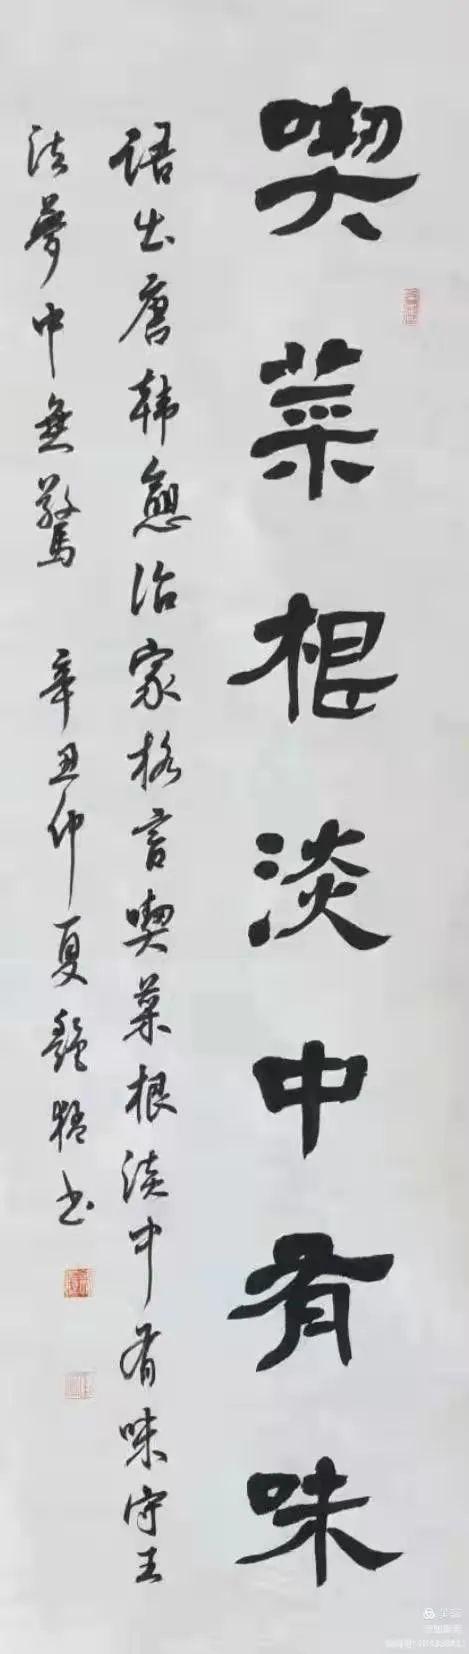 喫菜根淡中有味
语出唐韩愈治家格言喫菜根淡中有味守王
法夢中無驚 辛丑仲夏 书